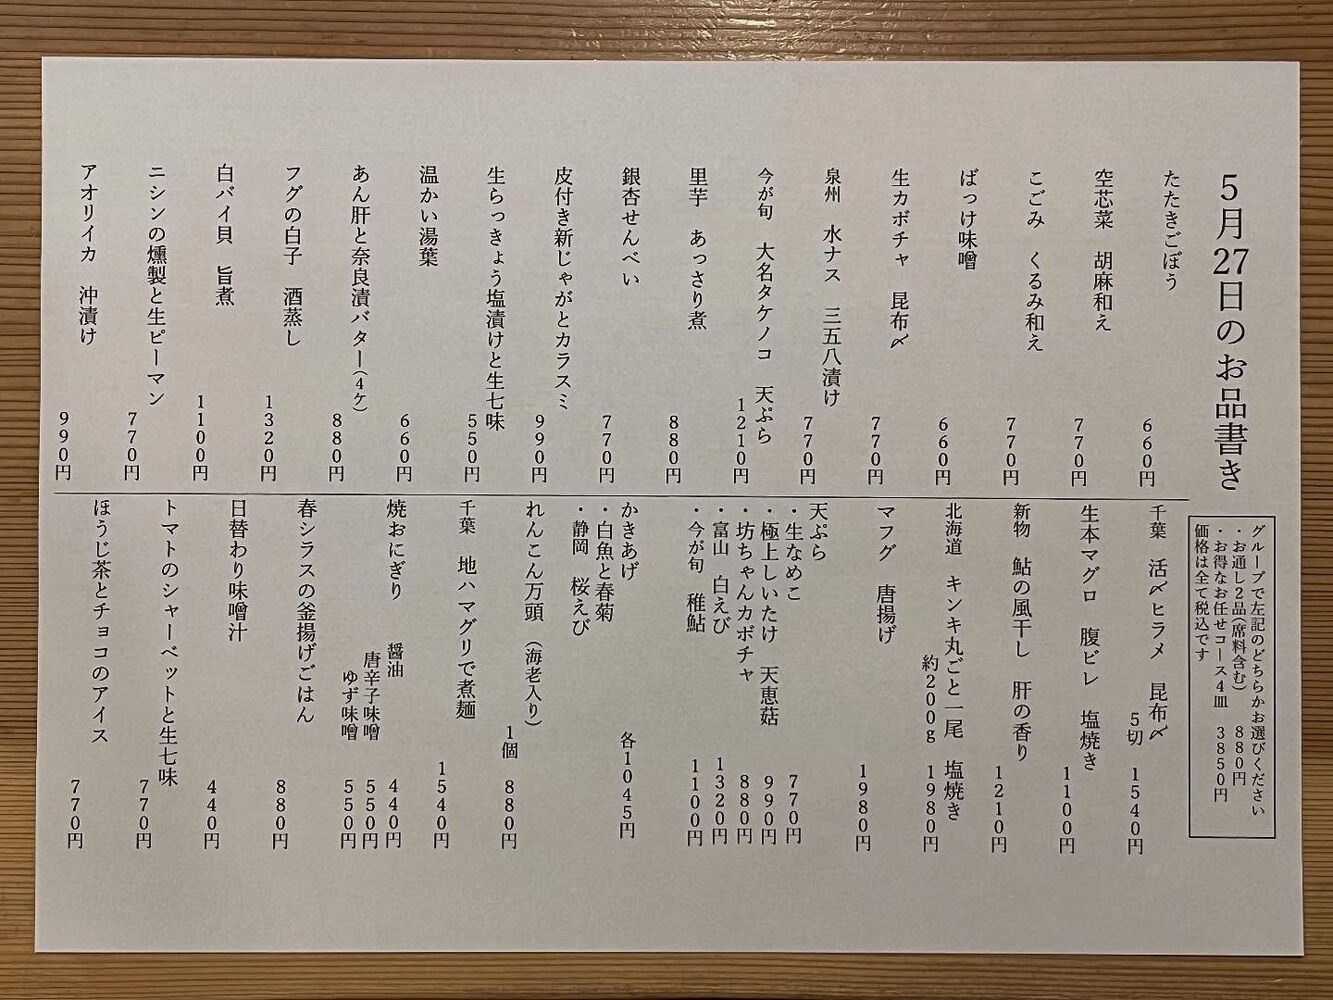 5月27日のお品書き
グループで左記のどちらかお選びください
・お通し2品(席料含む) 880円
・お得なお任せコース4皿 3850円
価格は全て税込です
たたきごぼう 660円
空芯菜 胡麻和え 770円
こごみ くるみ和え 770円
ばっけ味噌 660円
生カボチャ 昆布〆 770円
泉州 水ナス 三五八漬け 770円
今が旬 大名タケノコ 天ぷら 1210円
里芋 あっさり煮 880円
銀杏せんべい 770円
皮付き新じゃがとカラスミ 990円
生らっきょう塩漬けと生七味 550円
温かい湯葉 660円
あん肝と奈良漬バター(4ケ) 880円
フグの白子 酒蒸し 1320円
白バイ貝 旨煮 1100円
ニシンの燻製と生ピーマン 770円
アオリイカ 沖漬け 990円
千葉 活〆ヒラメ 昆布〆 5切 1540円
生本マグロ 腹ビレ 塩焼き 1100円
新物 鮎の風干し 肝の香り 1210円
北海道 キンキ丸ごと一尾 塩焼き
約200g 1980円
マフグ 唐揚げ 1980円
天ぷら
・生なめこ 770円
・極上しいたけ 天恵菇 990円
・坊ちゃんカボチャ 880円
・富山 白えび 1320円
・今が旬 稚鮎 1100円
かきあげ 各1045円
・白魚と春菊
・静岡 桜えび
れんこん万頭 (海老入り) 1個 880円
千葉 地ハマグリで煮麺 1540円
焼おにぎり 醤油 440円
唐辛子味噌 550円
ゆず味噌 550円
春シラスの釜揚げごはん 880円
日替わり味噌汁 440円
トマトのシャーベットと生七味 770円
ほうじ茶とチョコのアイス 770円